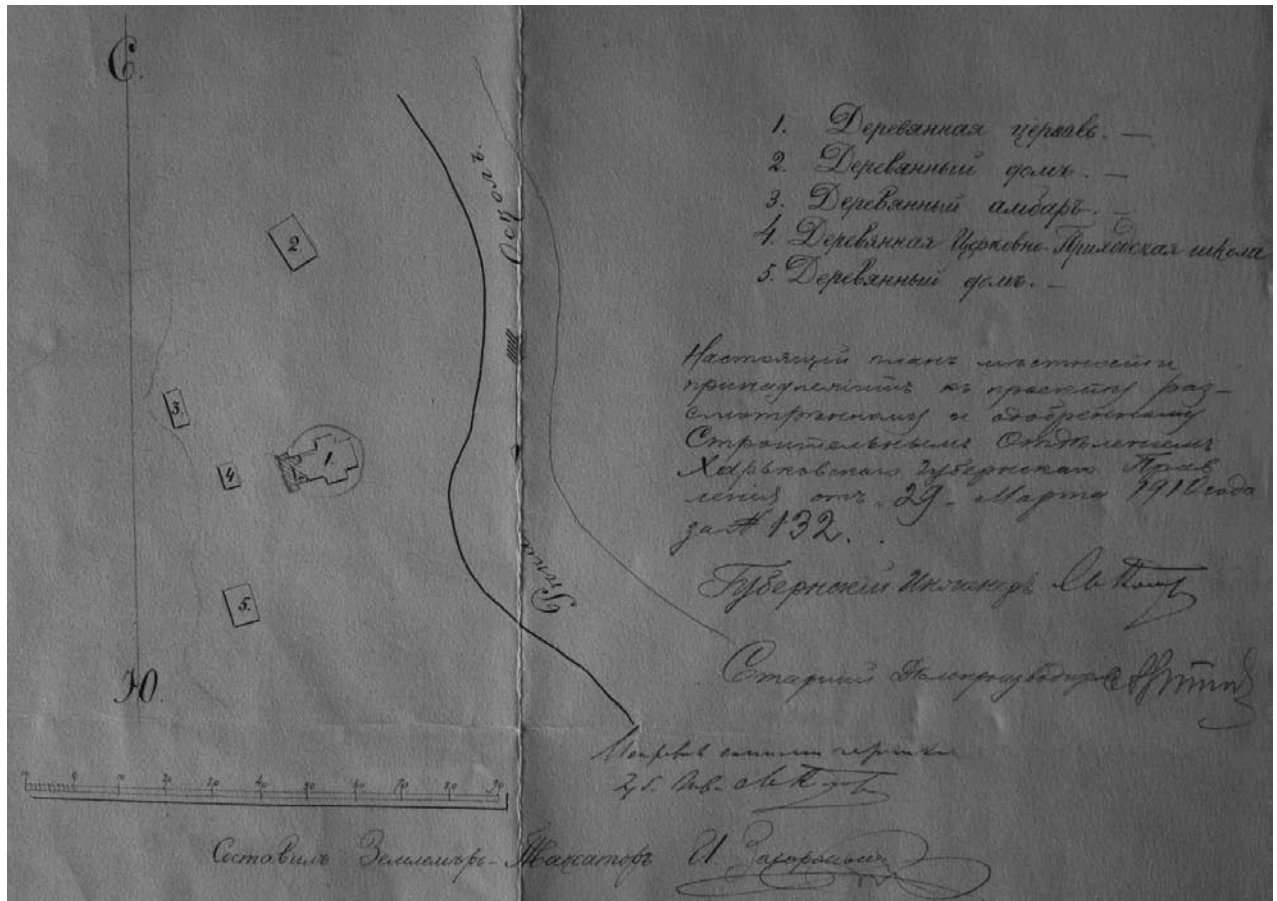 С.
Рѣка Осколъ.
2.
3.
4
1.
5.
Ю.
1. Деревянная церковь. —
2. Деревянный домъ. —
3. Деревянный амбаръ. —
4. Деревянная Церковно-Приходская школа
5. Деревянный домъ. —
Настоящій планъ мѣстности
принадлежитъ къ проекту раз-
смотрѣнному и одобренному
Строительнымъ Отдѣленіемъ
Харьковскаго Губернскаго Прав
ленія отъ 29 Марта 1910 года
за № 132.
Губернскій Инженеръ
Старшій Дѣлопроизводитель
0 10 20 30 40 50 60 70 80 90
Составилъ Землемѣръ-Таксаторъ И.